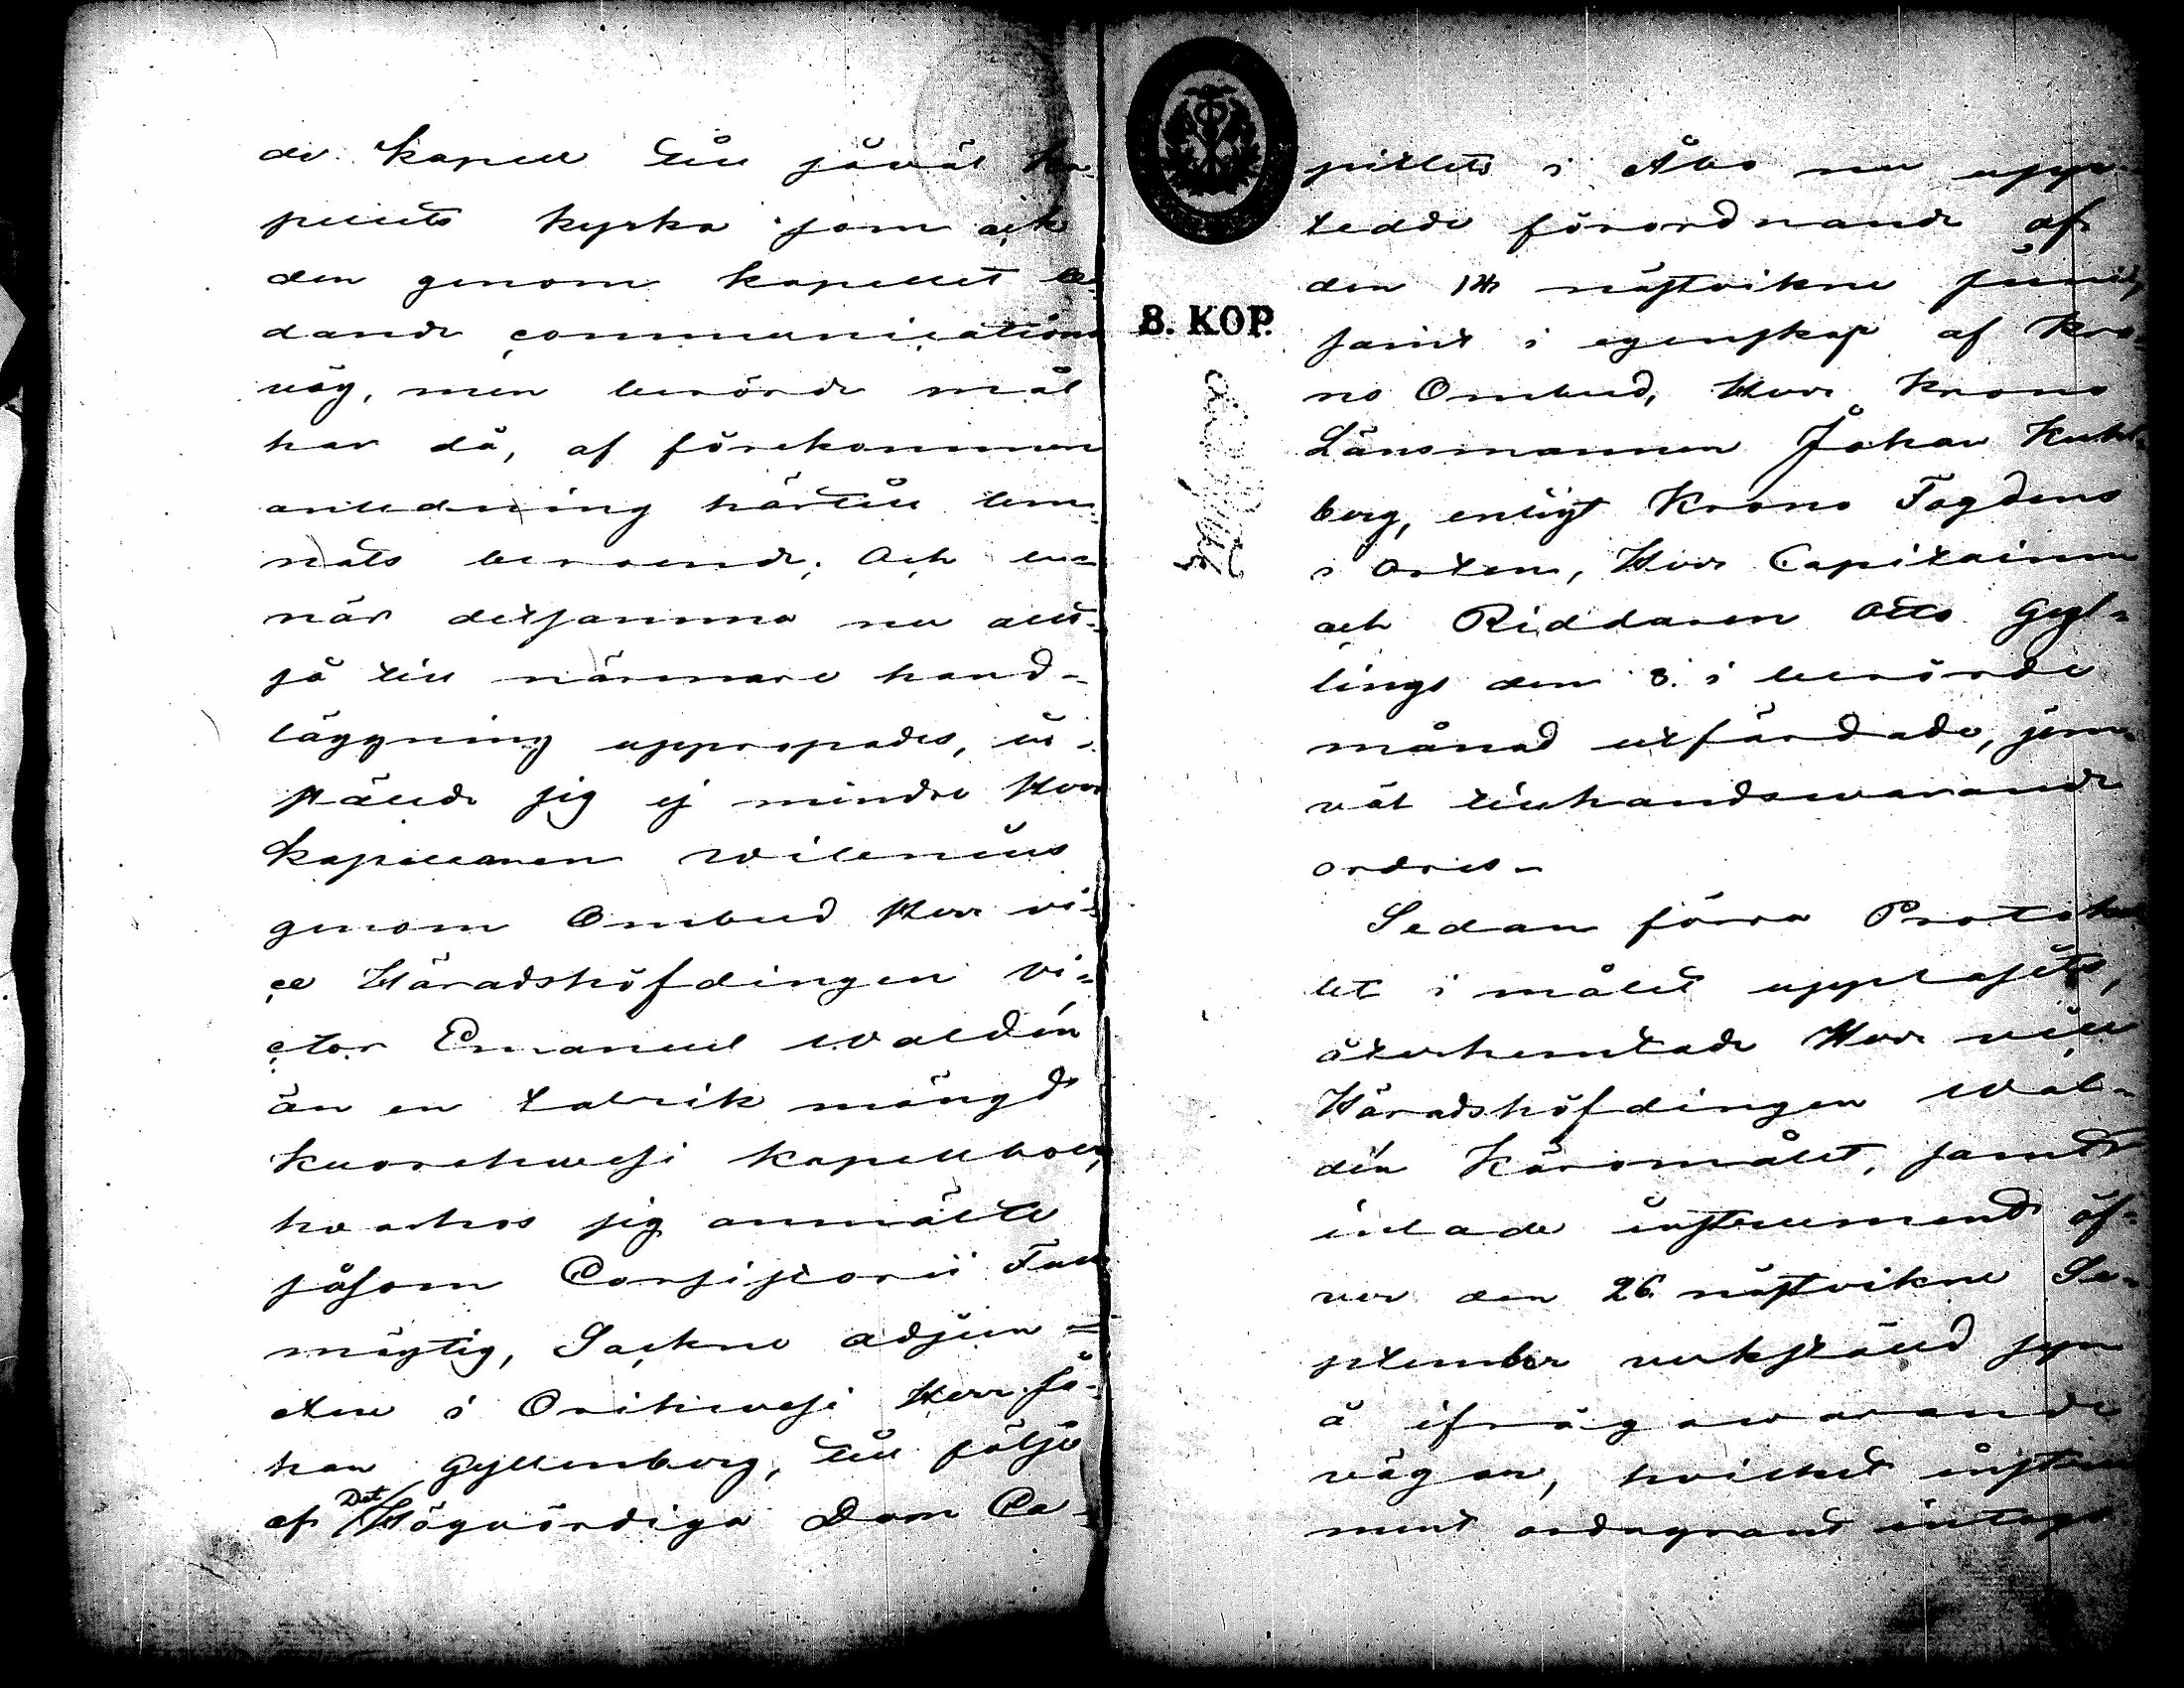 de Kapell till såväl ka-
pellets kyrka som ock
den genom kapellet le-
dande communications
väg, men berörde mål
har då, af förekommen
anledning härtill lem-
nats beroende; Och
när detsamma nu allt-
så till närmare hand-
läggning uppropades, in-
ställde sig ej mindre Herr
Kapellanen Wilenius
genom Ombud Herr vi-
ce Häradshöfdingen Vi-
ctor Emanuel Waldén
än en talrik mängd
Kuorehwesi kapellboer,
hvarhos sig anmälte
såsom Consistorii Full
mägtig, Sockne adjun-
cten i Orihwesi Herr Jo-
han Gyllenberg, till följe
af Det Högvördiga Dom Ca-
pitlets i Åbo nu upp-
tedde förordnande af
den 14 nästvikne Junii,
samt i egenskap af Kro-
no Ombud, Herr Krono
Länsmannen Johan Kuhl-
berg, enligt Krono Fogdens
i Orten, Herr Capitainen
och Riddaren Otto Gyl-
lings den 8. i berörde
månad utfärdade, jem-
väl tillhandswarande
ordres.-
Sedan förra Protokol
let i målet upplästs,
återhemtade Herr vice
Häradshöfdingen Wal-
dén Käromålet, samt
inlade instrument öf-
ver den 26. nästvikne Se-
ptember verkställd syn
å ifrågawarande
vägar, hvilket instru
ment ordagrant intages
8. KOP.